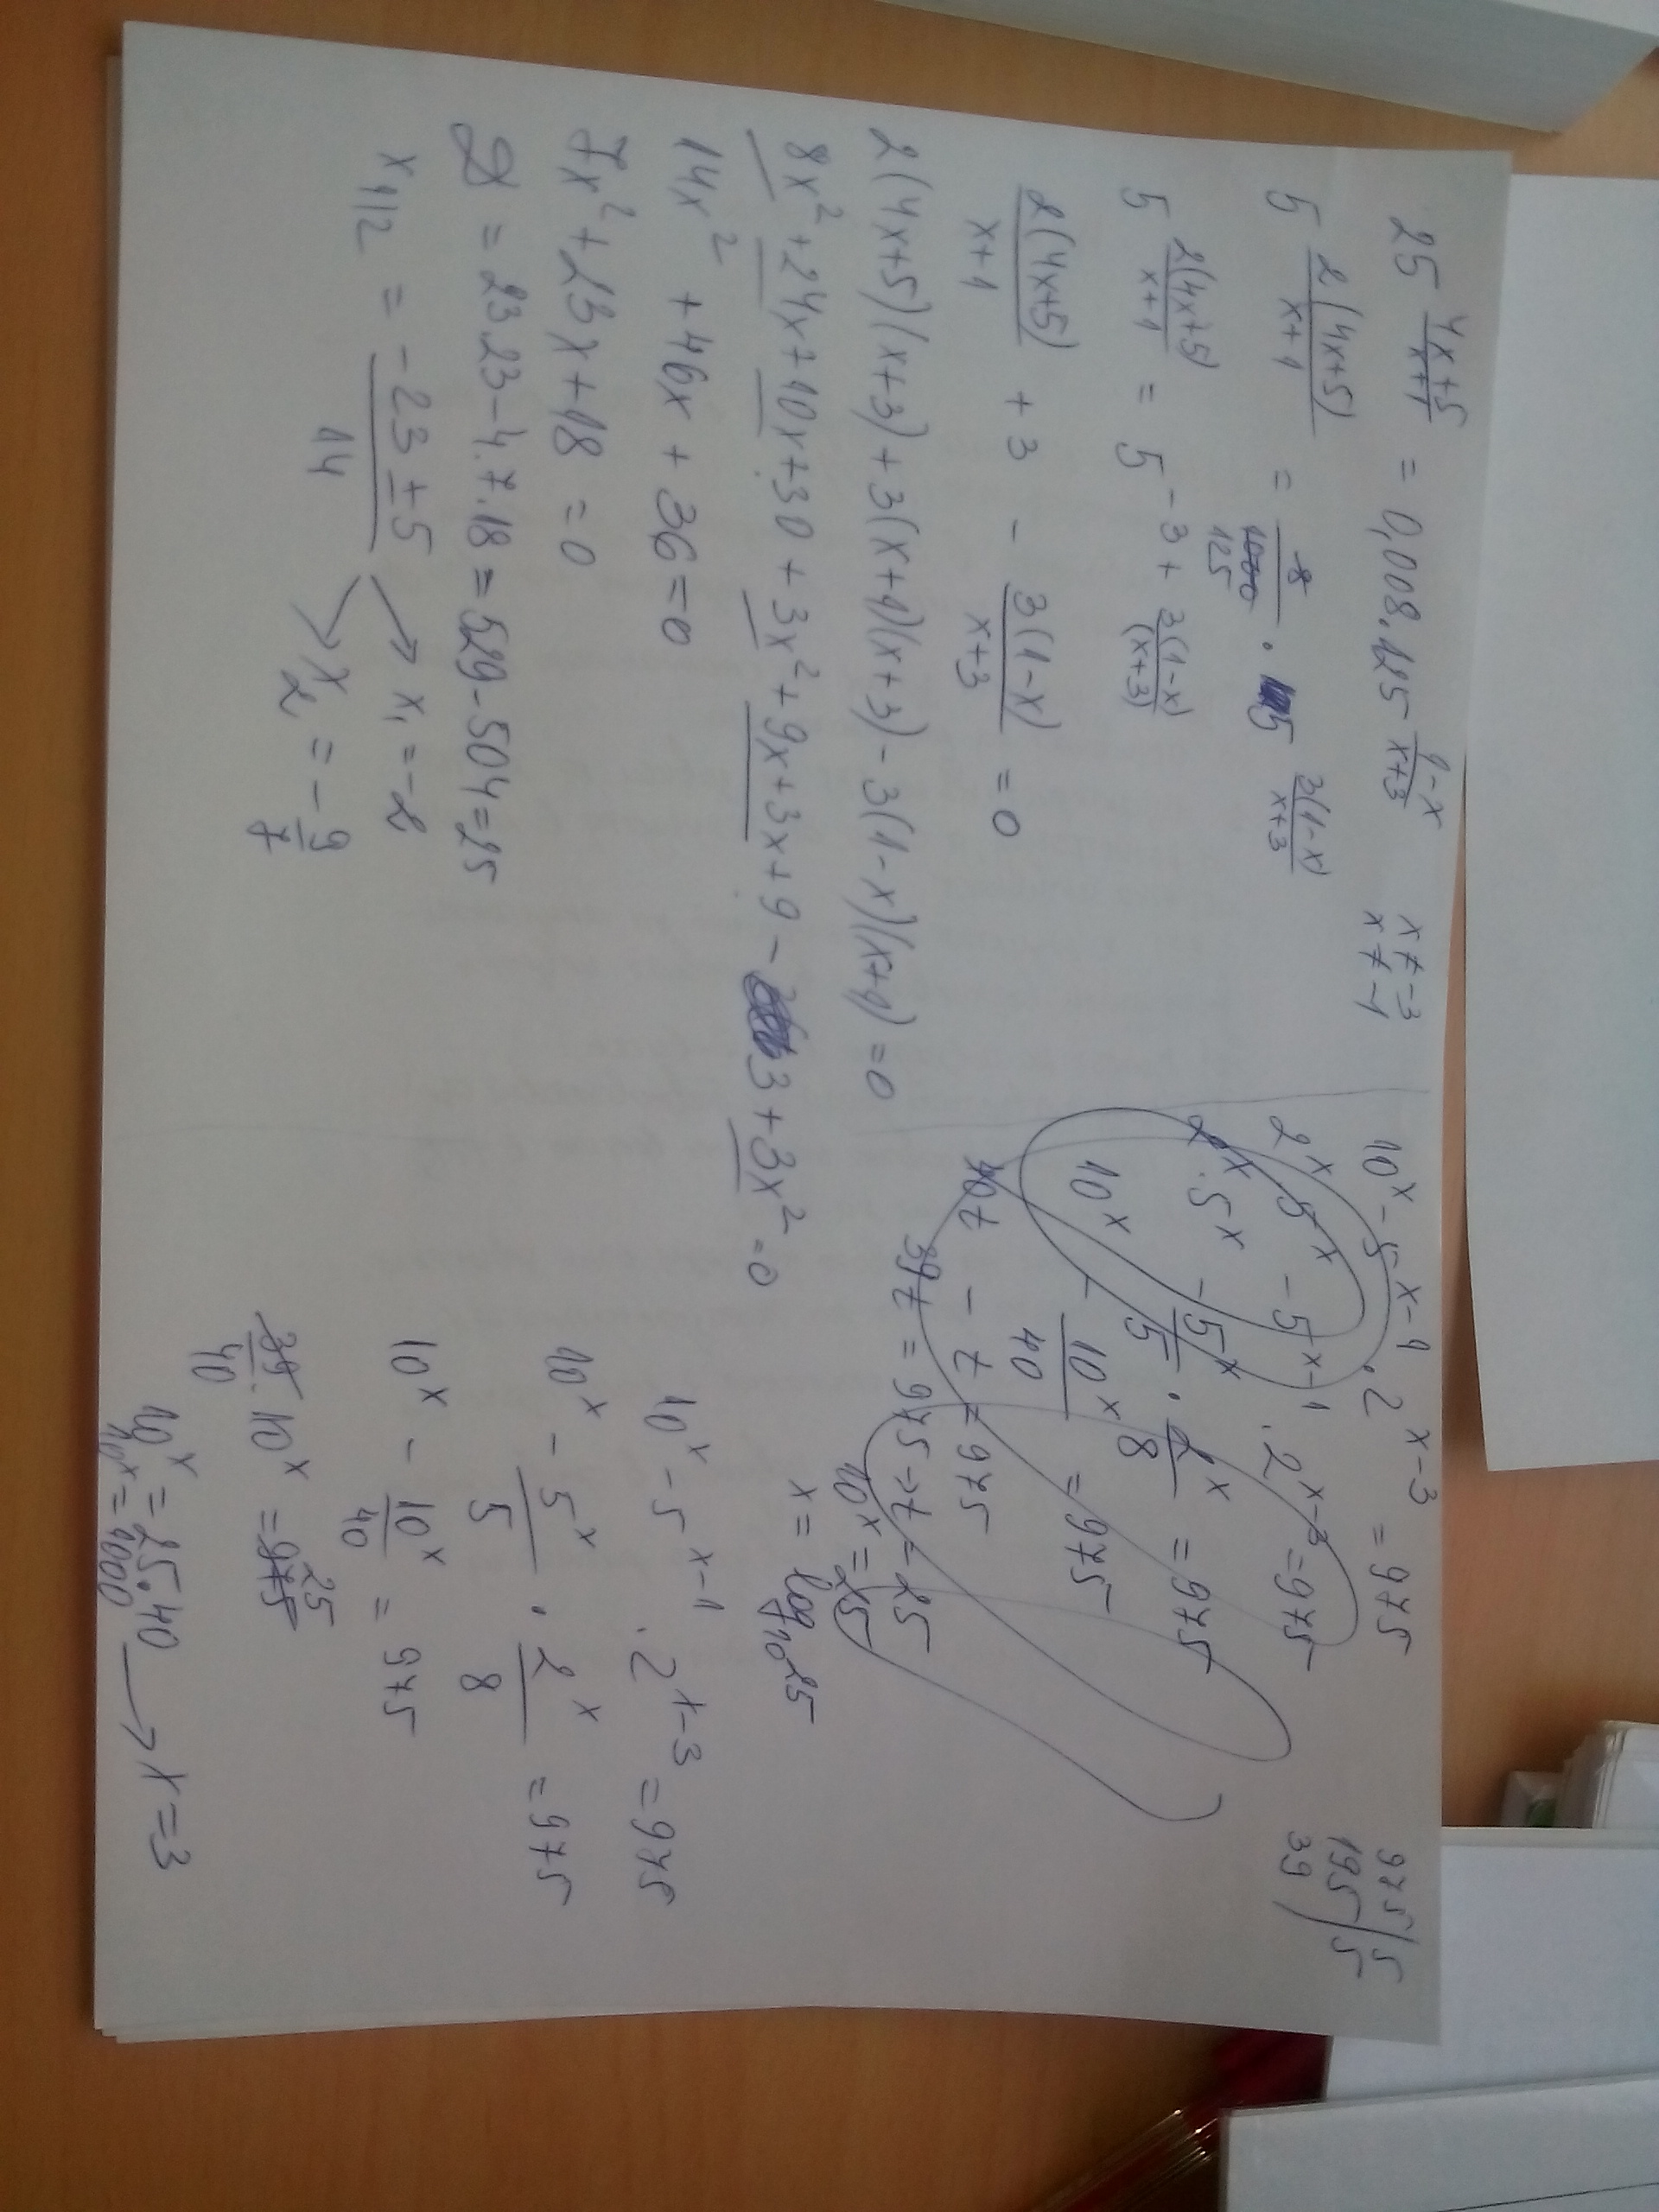 25^((4x+5)/(x+1)) = 0,008.125^((1-x)/(x+3)) x ≠ -3
x ≠ -1
5^(2(4x+5)/(x+1)) = 8/1000 125 . 5^(3(1-x)/(x+3))
5^(2(4x+5)/(x+1)) = 5^(-3 + 3(1-x)/(x+3))
2(4x+5)/(x+1) + 3 - 3(1-x)/(x+3) = 0
2(4x+5)(x+3)+3(x+1)(x+3)-3(1-x)(x+1)=0
8x²+24x+10x+30+3x²+9x+3x+9-3+3x²=0
14x² +46x + 36=0
7x²+23x+18=0
D = 23.23-4.7.18=529-504=25
x₁,₂ = (-23±5)/14 → x₁=-2
→ x₂ = -9/7
10^x - 5^(x-1) . 2^(x-3) = 975
2^x 5^x - 5^(x-1) . 2^(x-3) = 975
2^x . 5^x - 5^x/5 . 2^x/8 = 975
10^x - 10^x/40 = 975
40t - t = 975
39t = 975 → t = 25
10^x = 25
x = log₁₀25
975|5
195|5
39
10^x - 5^(x-1) . 2^(x-3) = 975
10^x - 5^x/5 . 2^x/8 = 975
10^x - 10^x/40 = 975
39/40 . 10^x = 975 25
10^x = 25.40 → x=3
10^x = 1000